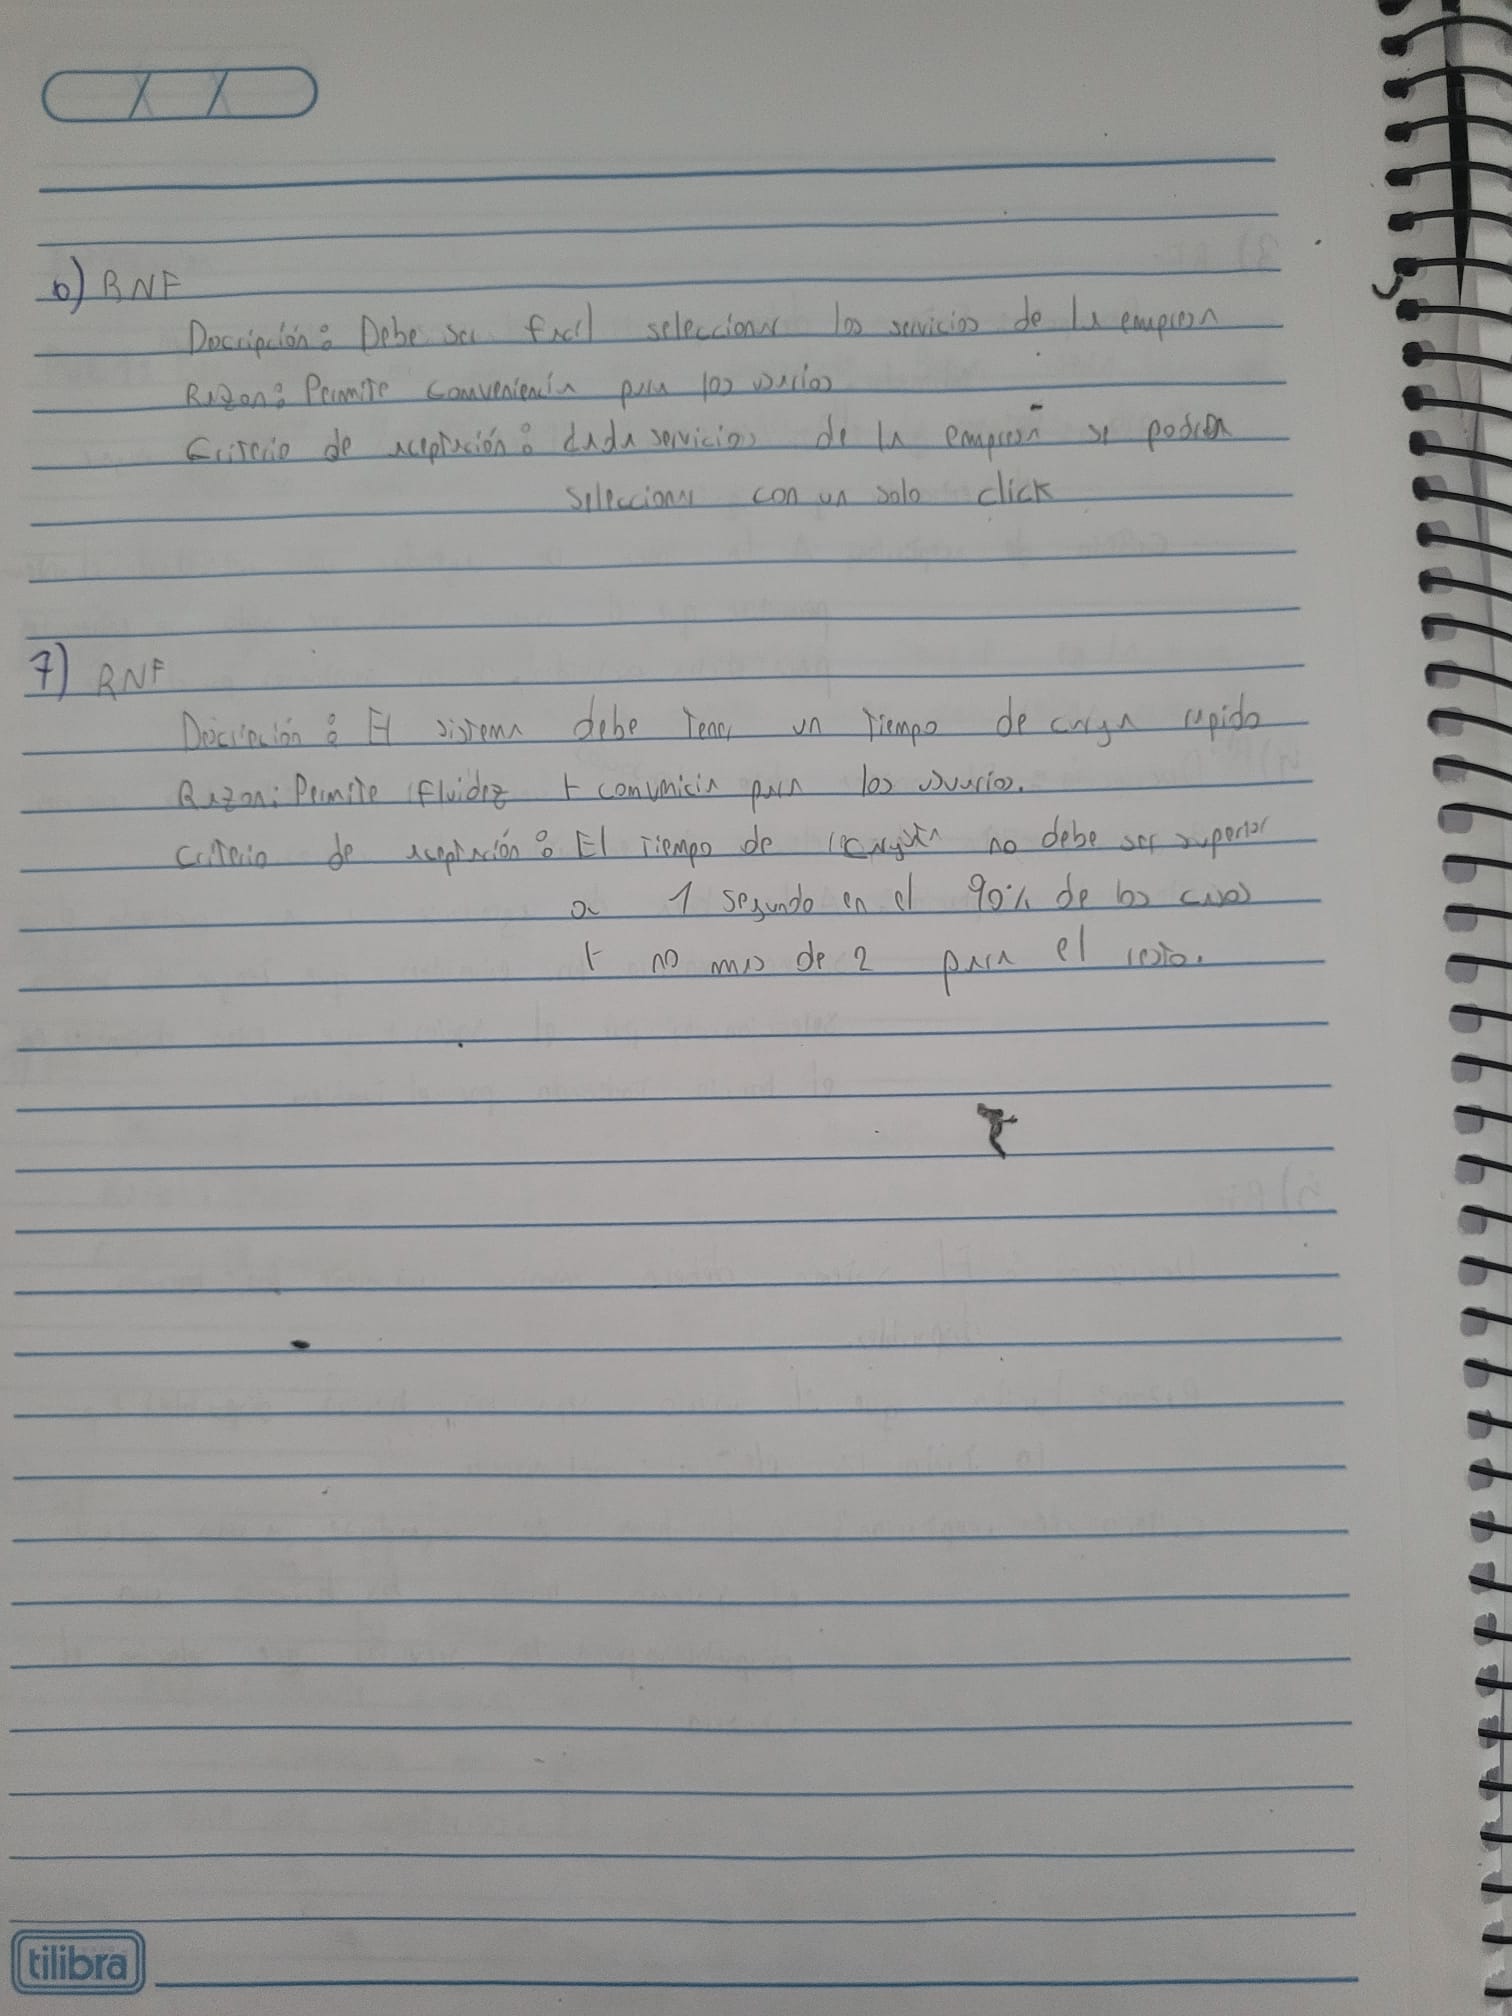 6) RNF
Descripción: Debe ser facil seleccionar los servicios de la empresa
Razon: Permite conveniencia para los usuarios
Criterio de aceptación: Cada servicios de la empresa se podrá
seleccionar con un solo click
7) RNF
Descripción: El sistema debe tener un tiempo de carga rapido
Razon: Permite fluidez y para los usuarios.
Criterio de aceptación: El tiempo de carga no debe ser superior
a 1 segundo en el 90% de los casos
y no mas de 2 para el resto.
tilibra